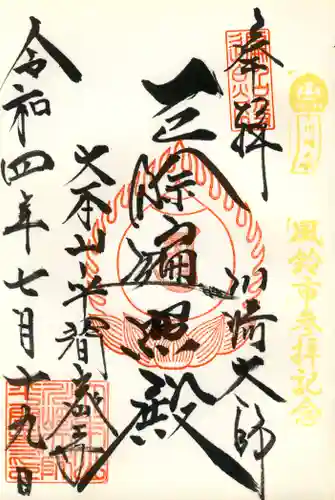 風鈴市参拝記念
奉拝
川崎大師
遍照殿
大本山平間寺
令和四年七月十九日